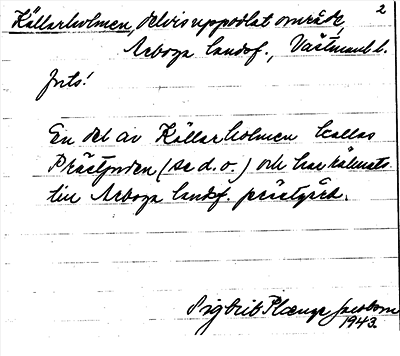 2
Källarholmen, delvis uppodlat område,
Arboga landsf., Västmanl. l.
forts!
En del av Källarholmen kallas
Prästjorden (se d. o.) och har räknats
till Arboga landsf. prästgård.
Sigbrit Plænge Jacobson
1943.